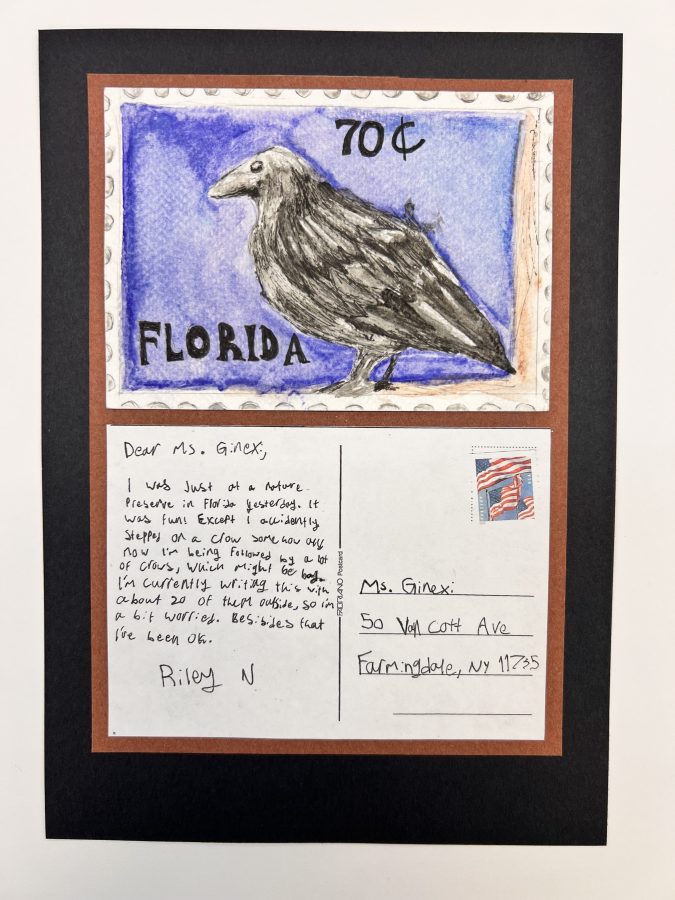 70¢
FLORIDA
Dear Ms. Ginexi,
I was just at a nature
Preserve in Florida yesterday. It
was fun! Except I accidently
stepped on a crow somehow and
now I'm being followed by a lot
of crows, which might be bad.
I'm currently writing this with
about 20 of them outside, so i'm
a bit worried. Besibides that
I've been ok.
Riley N
FABRIANO Postcard
Ms. Ginexi
50 Van Cott Ave
Farmingdale, NY 11735